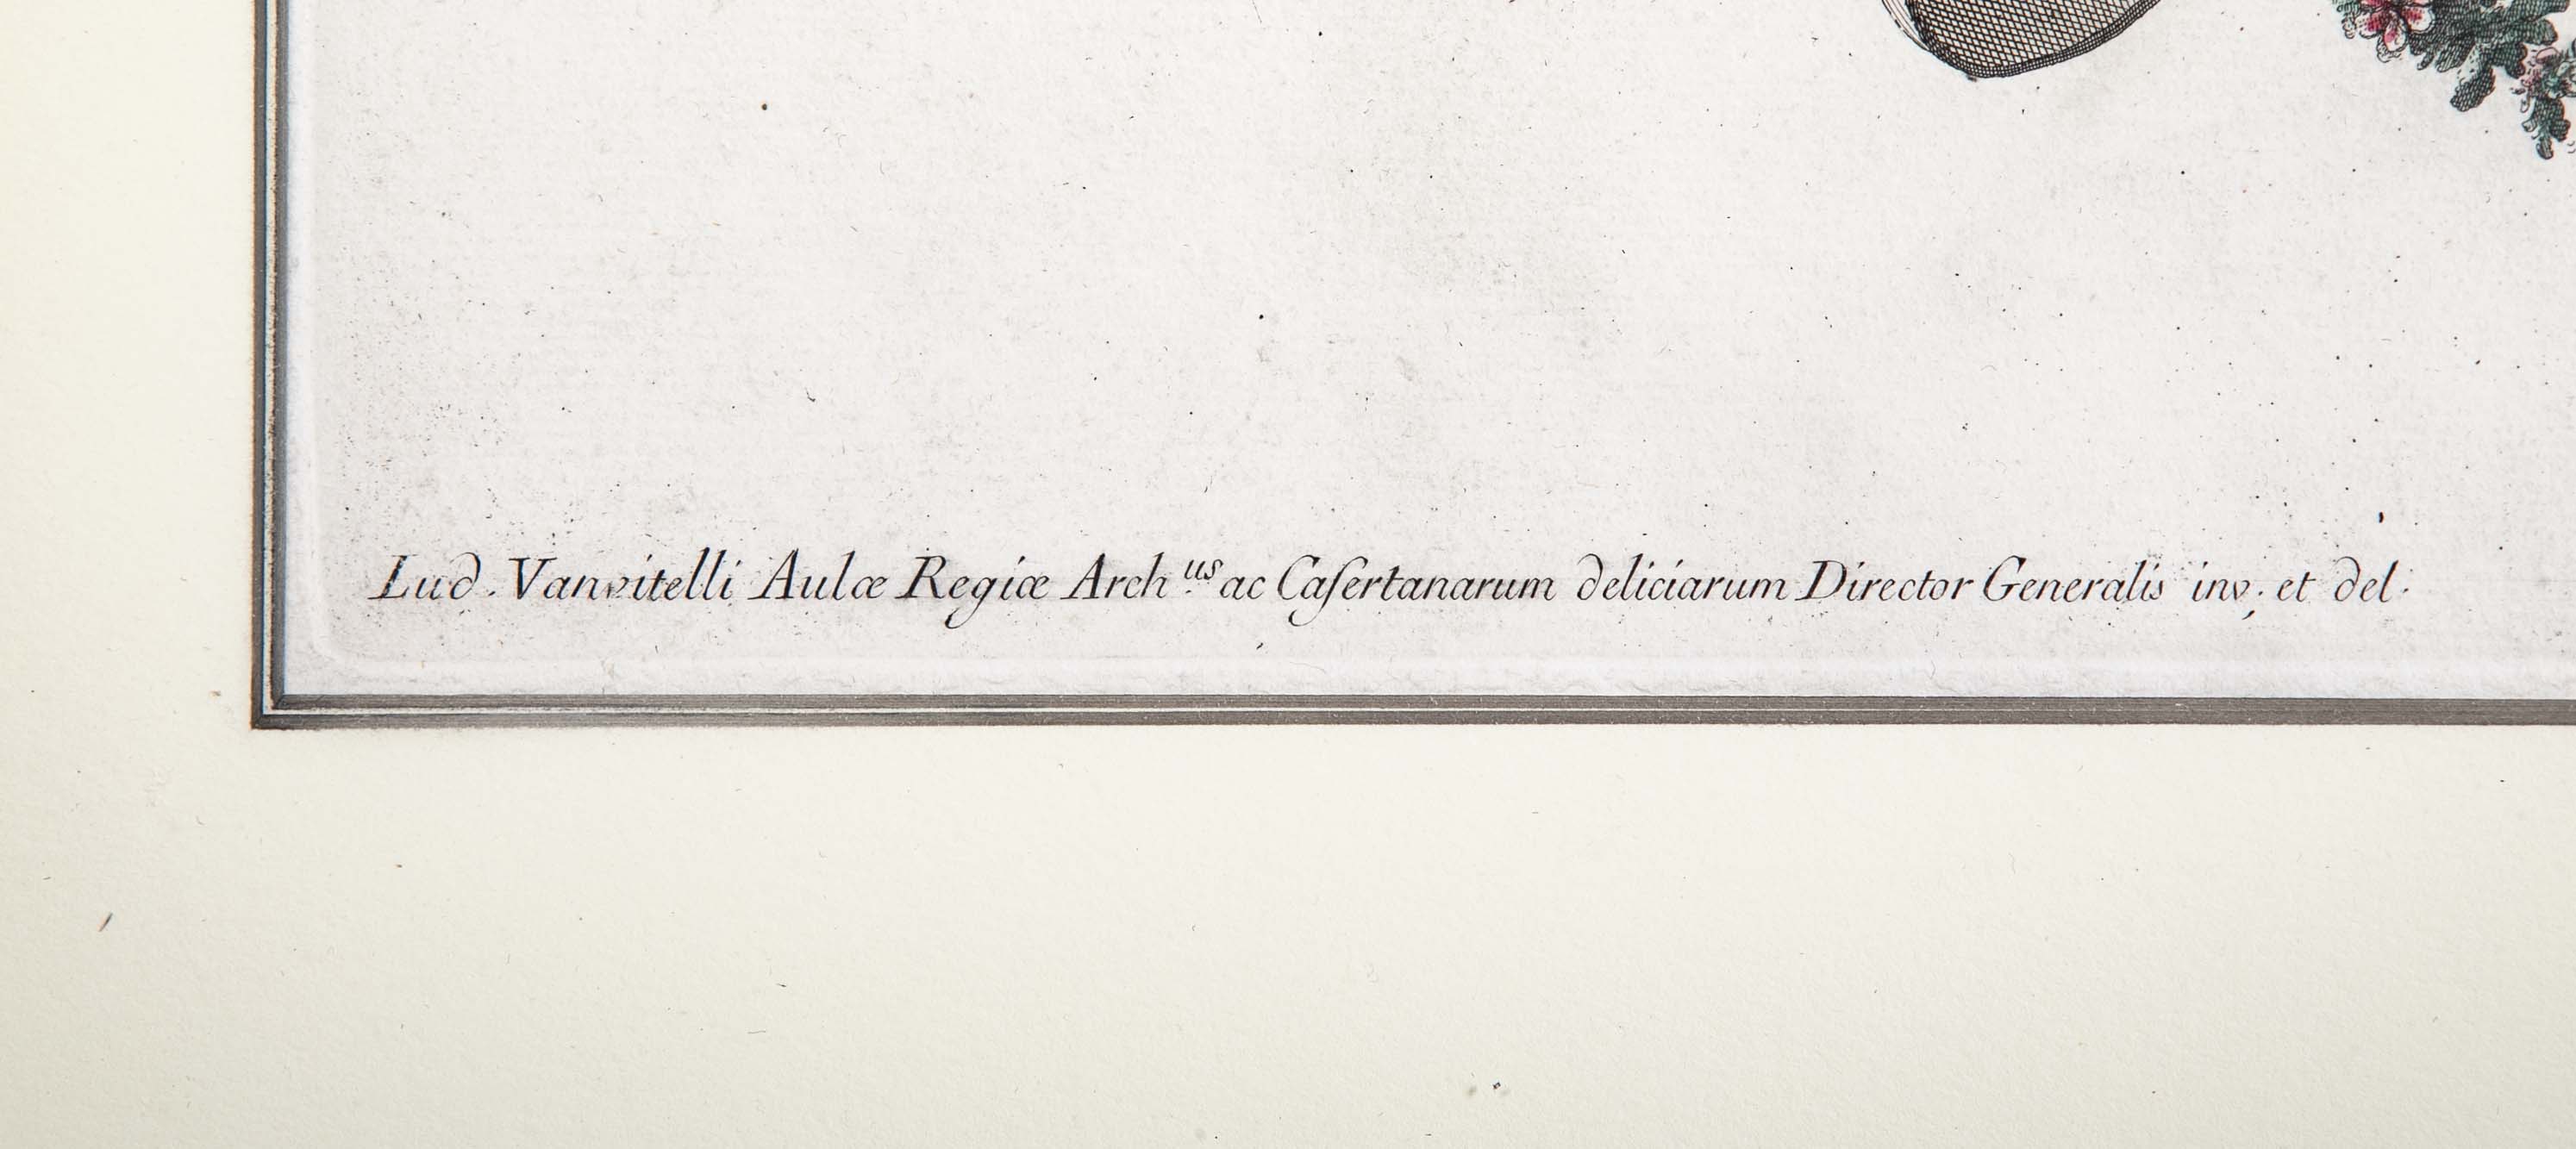 Lud. Vanvitelli Aulæ Regiæ Arch.ᵘˢ ac Caſertanarum deliciarum Director Generalis inv. et del.